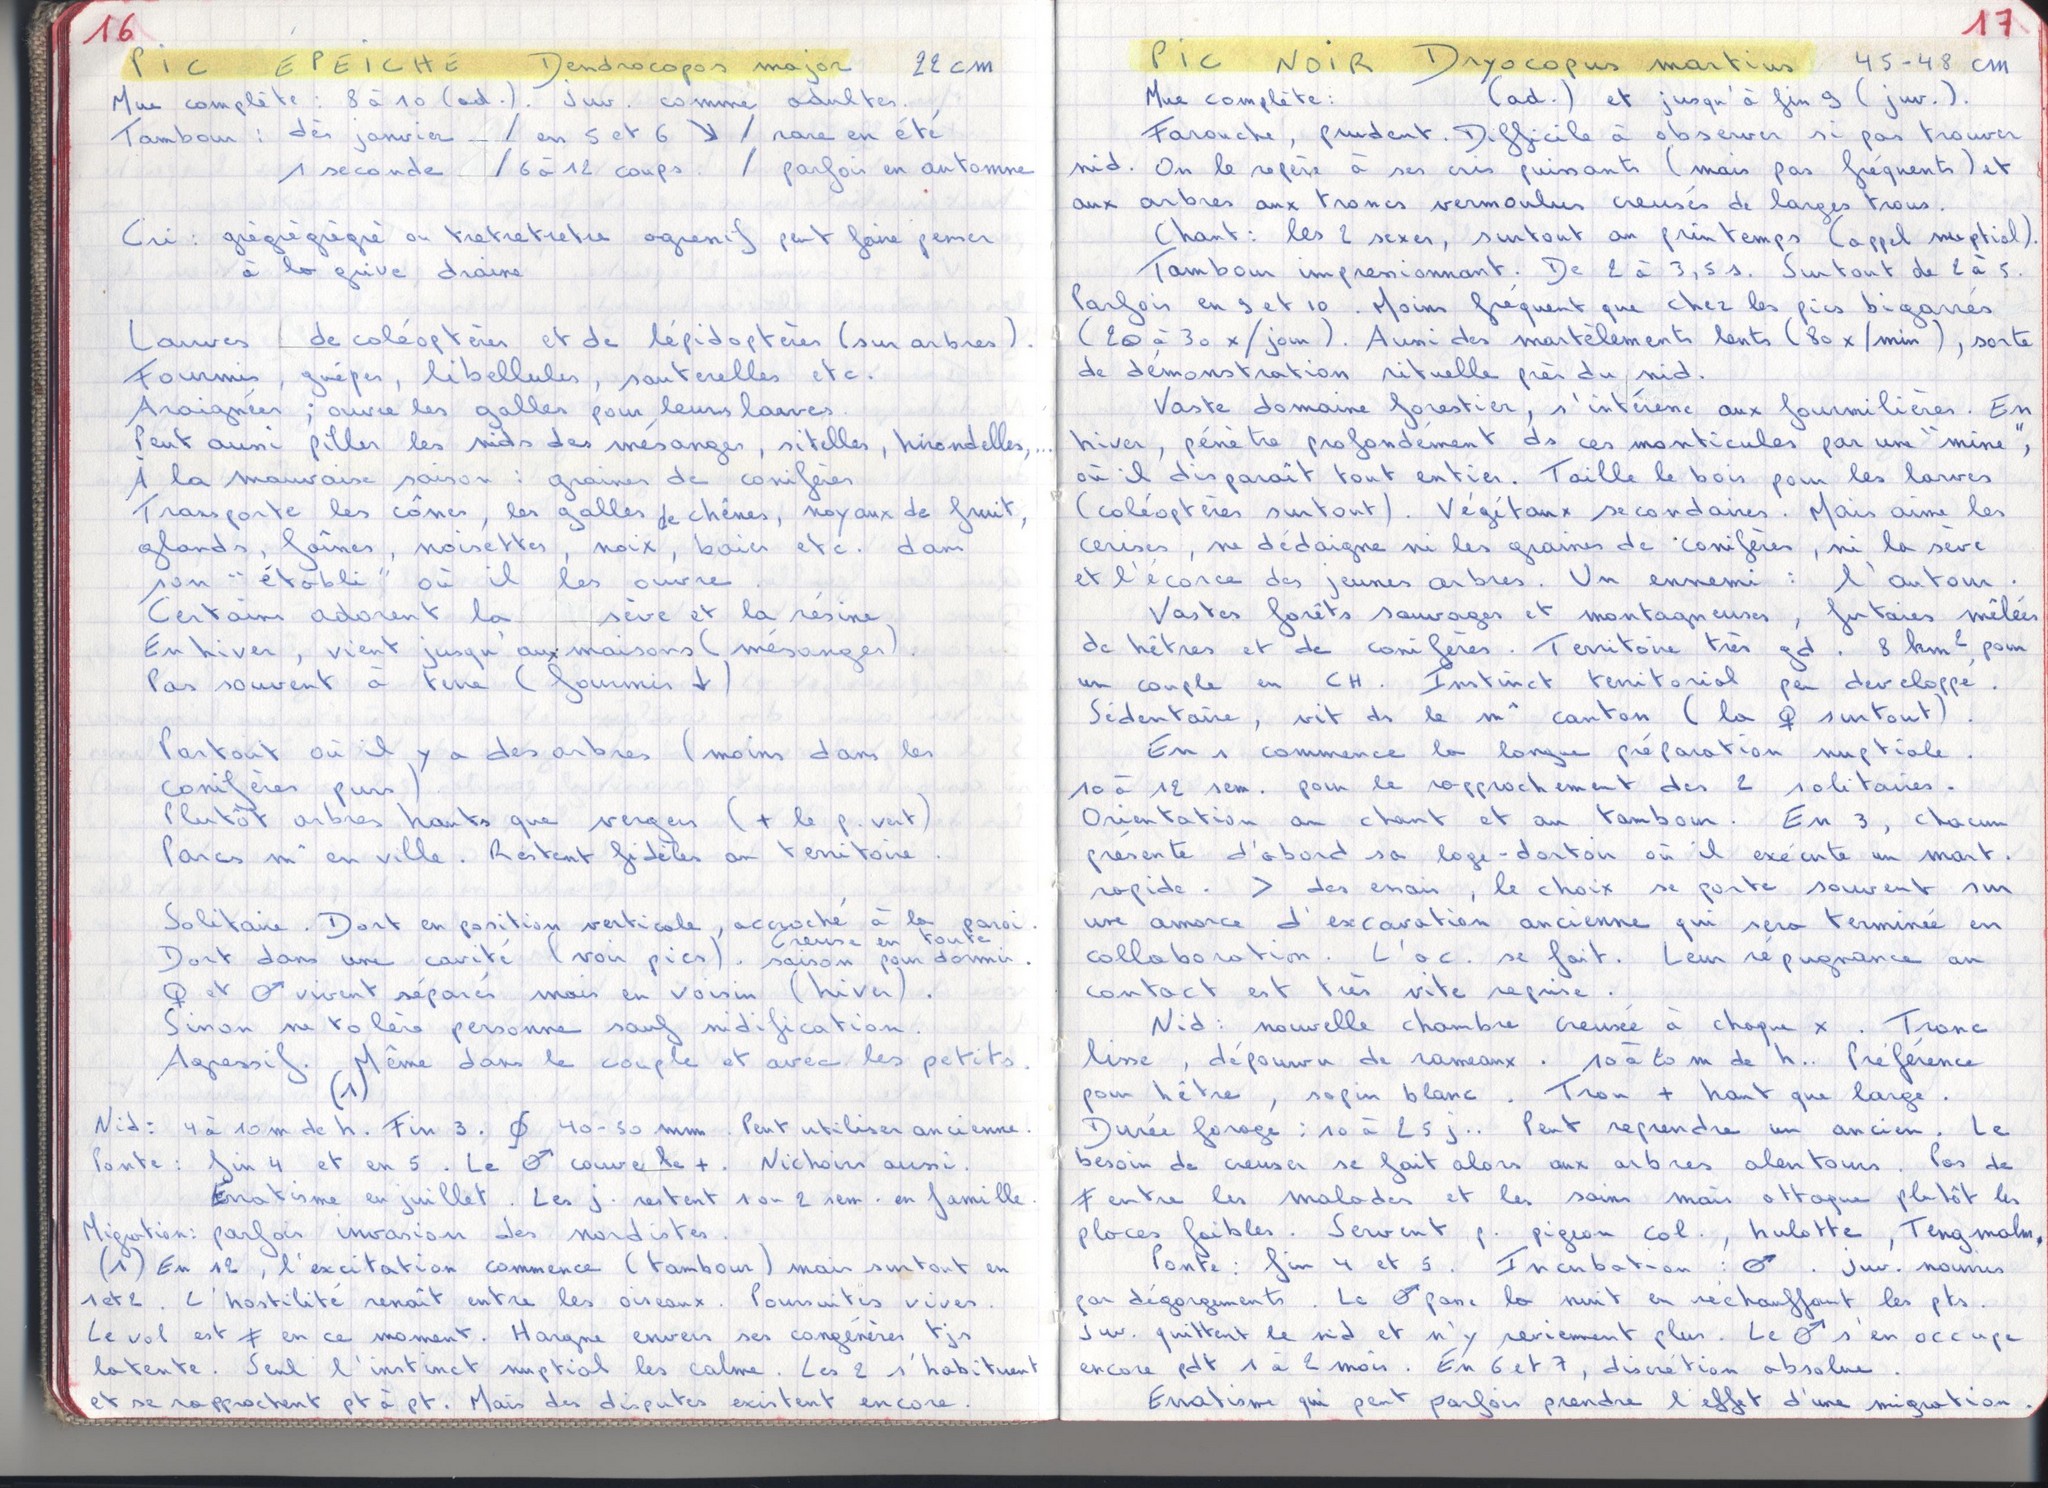 16
PIC ÉPEICHE Dendrocopos major 22 cm
Mue complète : 8 à 10 (ad.). Juv. comme adultes.
Tambour : dès janvier / en 5 et 6 ↘ / rare en été
1 seconde / 6 à 12 coups. / parfois en automne
Cri : grègrègrègrè ou tretretretre agressif peut faire penser
à la grive draine
Larves de coléoptères et de lépidoptères (sur arbres).
Fourmis, guêpes, libellules, sauterelles etc.
Araignées ; ouvre les galles pour leurs larves.
Peut aussi piller les nids des mésanges, sitelles, hirondelles,...
À la mauvaise saison : graines de conifères
Transporte les cônes, les galles de chênes, noyaux de fruit,
glands, faînes, noisettes, noix, baies etc. dans
son "établi" où il les ouvre.
Certains adorent la sève et la résine
En hiver, vient jusqu'aux maisons (mésanges).
Pas souvent à terre (fourmis ↓)
Partout où il y a des arbres (moins dans les
conifères purs)
Plutôt arbres hauts que vergers (+ le p. vert)
Parcs m^ en ville. Restent fidèles au territoire.
Solitaire. Dort en position verticale, accroché à la paroi.
Dort dans une cavité (voir pics). Creuse en toute saison pour dormir.
♀ et ♂ vivent séparés mais en voisin (hiver).
Sinon ne tolère personne sauf nidification.
Agressif. Même dans le couple et avec les petits.
(1)
Nid : 4 à 10 m de h. Fin 3. ∅ 40-50 mm. Peut utiliser ancienne.
Ponte : fin 4 et en 5. Le ♂ couve le +. Nichoirs aussi.
Erratisme en juillet. Les j. restent 1 ou 2 sem. en famille.
Migration : parfois invasion des nordistes.
(1) En 12, l'excitation commence (tambour) mais surtout en
1 et 2. L'hostilité renaît entre les oiseaux. Poursuites vives.
Le vol est ≠ en ce moment. Hargne envers ses congénères tjs
latente. Seul l'instinct nuptial les calme. Les 2 s'habituent
et se rapprochent pt à pt. Mais des disputes existent encore.
17
PIC NOIR Dryocopus martius 45-48 cm
Mue complète : (ad.) et jusqu'à fin 9 (juv.).
Farouche, prudent. Difficile à observer si pas trouver
nid. On le repère à ses cris puissants (mais pas fréquents) et
aux arbres aux troncs vermoulus creusés de larges trous.
Chant : les 2 sexes, surtout au printemps (appel nuptial).
Tambour impressionnant. De 2 à 3,5 s. Surtout de 2 à 5.
Parfois en 9 et 10. Moins fréquent que chez les pics bigarrés
(20 à 30 x/jour). Aussi des martèlements lents (80 x/min), sorte
de démonstration rituelle près du nid.
Vaste domaine forestier, s'intéresse aux fourmilières. En
hiver, pénètre profondément ds ces monticules par une "mine",
où il disparaît tout entier. Taille le bois pour les larves
(coléoptères surtout). Végétaux secondaires. Mais aime les
cerises, ne dédaigne ni les graines de conifères, ni la sève
et l'écorce des jeunes arbres. Un ennemi : l'autour.
Vastes forêts sauvages et montagneuses, futaies mêlées
de hêtres et de conifères. Territoire très gd. 8 km² pour
un couple en CH. Instinct territorial peu développé.
Sédentaire, vit ds le m^ canton (la ♀ surtout).
En 1 commence la longue préparation nuptiale.
10 à 12 sem. pour le rapprochement des 2 solitaires.
Orientation au chant et au tambour. En 3, chacun
présente d'abord sa loge-dortoir où il exécute un mart.
rapide. > des essais, le choix se porte souvent sur
une amorce d'excavation ancienne qui sera terminée en
collaboration. L'ac. se fait. Leur répugnance au
contact est très vite reprise.
Nid : nouvelle chambre creusée à chaque x. Tronc
lisse, dépourvu de rameaux. 10 à 20 m de h.. Préférence
pour hêtre, sapin blanc. Trou + haut que large.
Durée forage : 10 à 25 j.. Peut reprendre un ancien. Le
besoin de creuser se fait alors aux arbres alentours. Pas de
≠ entre les malades et les sains mais attaque plutôt les
places faibles. Servent p. pigeon col., hulotte, Tengmalm.
Ponte : fin 4 et 5. Incubation : ♂. Juv. nourris
par dégorgements. Le ♂ passe la nuit en réchauffant les pts.
Juv. quittent le nid et n'y reviennent plus. Le ♂ s'en occupe
encore pdt 1 à 2 mois. En 6 et 7, discrétion absolue.
Erratisme qui peut parfois prendre l'effet d'une migration.